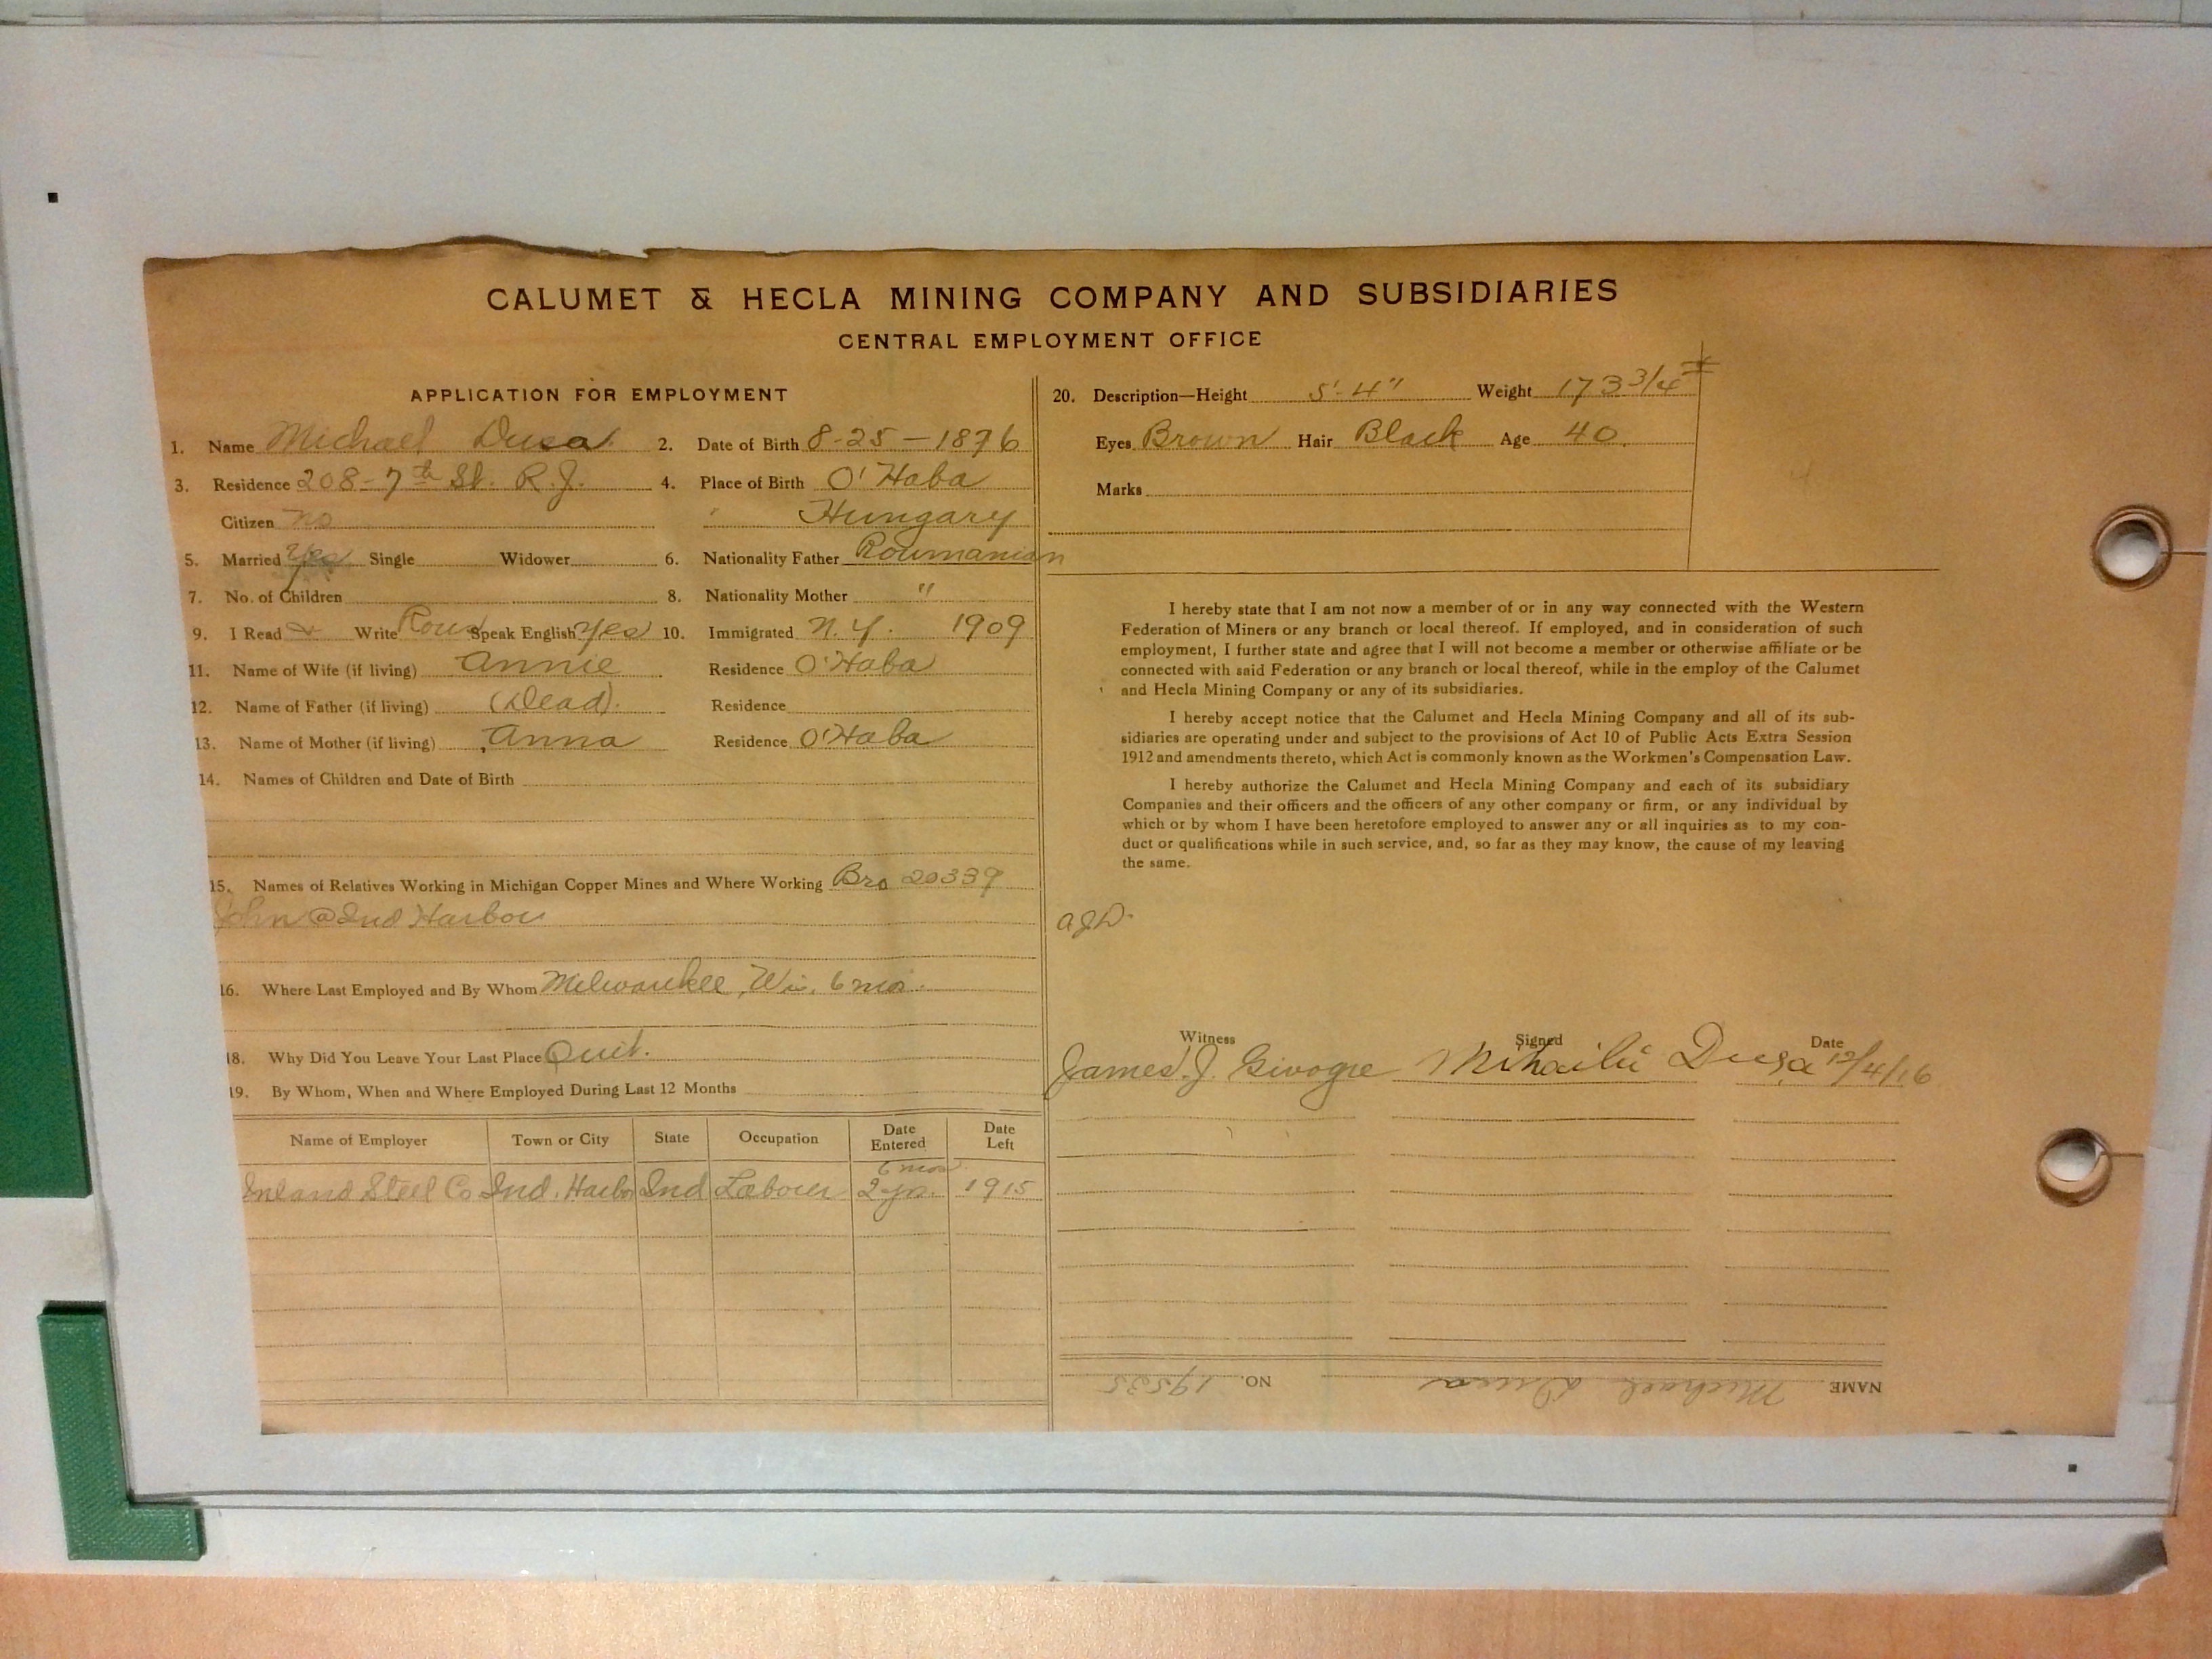 CALUMET & HECLA MINING COMPANY AND SUBSIDIARIES
CENTRAL EMPLOYMENT OFFICE
APPLICATION FOR EMPLOYMENT
1. Name Michael Dusa 2. Date of Birth 8-25-1876
3. Residence 208-7th St. R.J. 4. Place of Birth O'Haba
Citizen no Hungary
5. Married Yes Single Widower 6. Nationality Father Roumanian
7. No. of Children 8. Nationality Mother "
9. I Read & Write Roum Speak English Yes 10. Immigrated N.Y. 1909
11. Name of Wife (if living) Annie Residence O'Haba
12. Name of Father (if living) (Dead). Residence
13. Name of Mother (if living) Anna Residence O'Haba
14. Names of Children and Date of Birth
15. Names of Relatives Working in Michigan Copper Mines and Where Working Bro 20339
John @ Ind Harbor
16. Where Last Employed and By Whom Milwaukee, Wis. 6 mos.
18. Why Did You Leave Your Last Place Quit.
19. By Whom, When and Where Employed During Last 12 Months
Name of Employer Town or City State Occupation Date Entered Date Left
6 mos
Inland Steel Co Ind. Harbor Ind Labour 2 yrs. 1915
20. Description—Height 5'-4" Weight 173 3/4 #
Eyes Brown Hair Black Age 40.
Marks
I hereby state that I am not now a member of or in any way connected with the Western
Federation of Miners or any branch or local thereof. If employed, and in consideration of such
employment, I further state and agree that I will not become a member or otherwise affiliate or be
connected with said Federation or any branch or local thereof, while in the employ of the Calumet
and Hecla Mining Company or any of its subsidiaries.
I hereby accept notice that the Calumet and Hecla Mining Company and all of its sub-
sidiaries are operating under and subject to the provisions of Act 10 of Public Acts Extra Session
1912 and amendments thereto, which Act is commonly known as the Workmen's Compensation Law.
I hereby authorize the Calumet and Hecla Mining Company and each of its subsidiary
Companies and their officers and the officers of any other company or firm, or any individual by
which or by whom I have been heretofore employed to answer any or all inquiries as to my con-
duct or qualifications while in such service, and, so far as they may know, the cause of my leaving
the same.
AJD.
Witness Signed Date
James J. Mihailu Dusa 12/4/16
NAME Michael Dusa NO. 19535